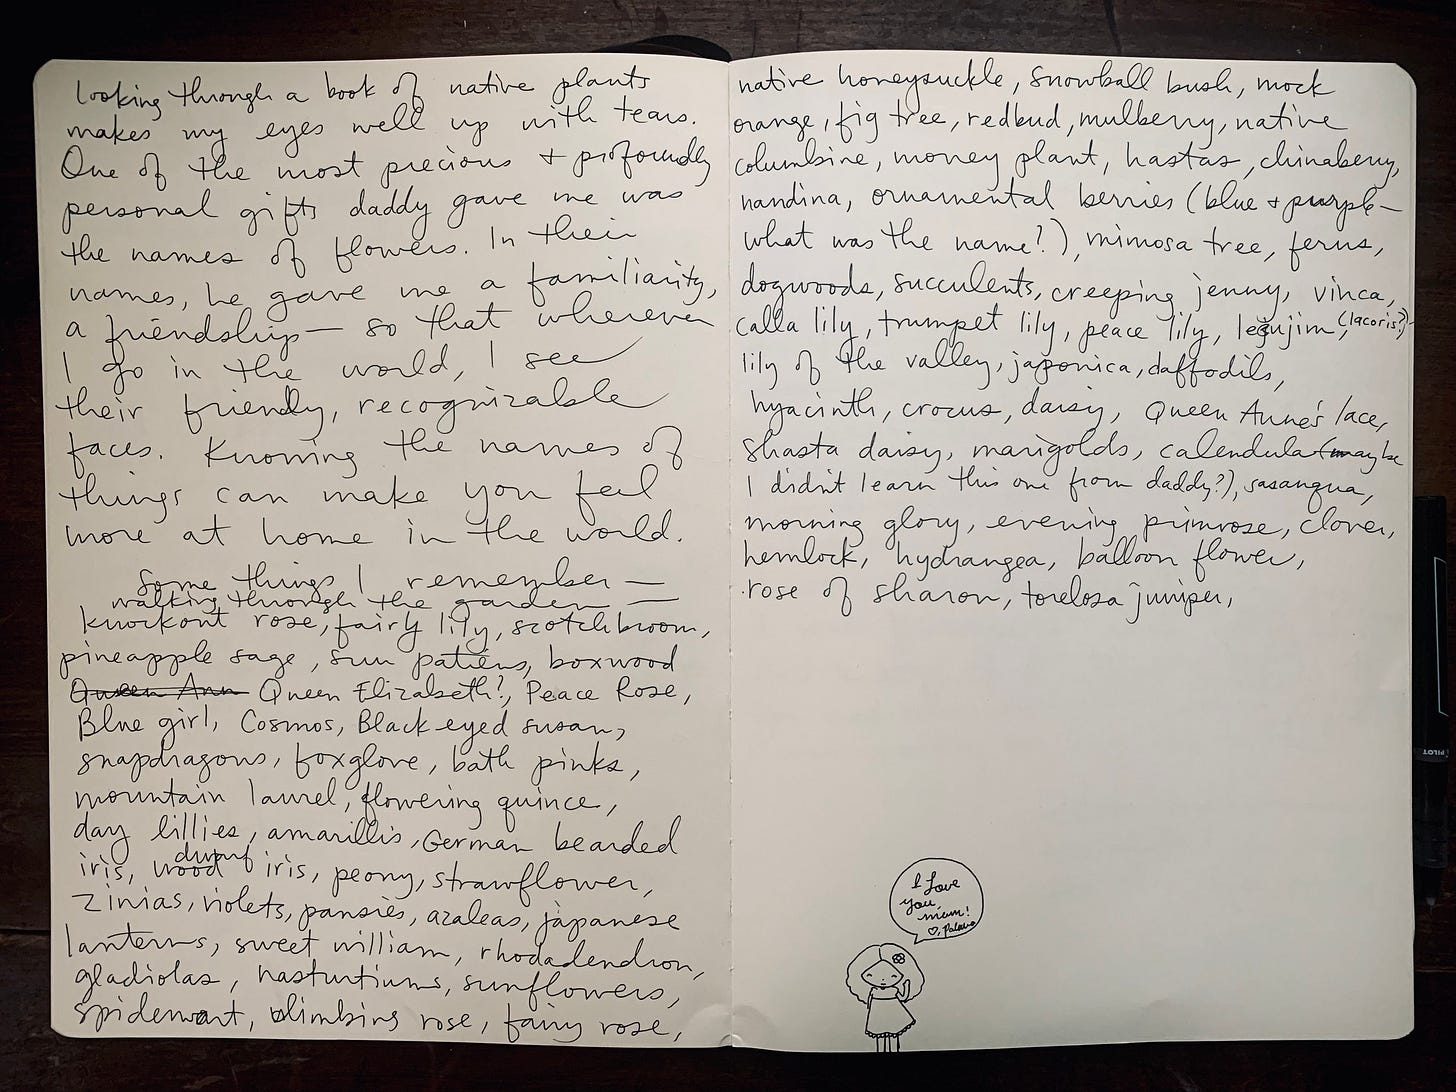 looking through a book of native plants
makes my eyes well up with tears.
One of the most precious + profoundly
personal gifts daddy gave me was
the names of flowers. In their
names, he gave me a familiarity,
a friendship — so that wherever
I go in the world, I see
their friendly, recognizable
faces. Knowing the names of
things can make you feel
more at home in the world.
Some things I remember —
walking through the garden —
knockout rose, fairy lily, scotch broom,
pineapple sage, sun patiens, boxwood
Queen Ann Queen Elizabeth?, Peace Rose,
Blue girl, Cosmos, Black-eyed susan,
snapdragons, foxglove, bath pinks,
mountain laurel, flowering quince,
day lillies, amarillis, German bearded
dwarf
iris, wood iris, peony, strawflower,
zinias, violets, pansies, azaleas, japanese
lanterns, sweet william, rhodadendron,
gladiolas, nasturtiums, sunflowers,
spiderwort, climbing rose, fairy rose,
native honeysuckle, snowball bush, mock
orange, fig tree, redbud, mulberry, native
columbine, money plant, hastas, chinaberry,
nandina, ornamental berries (blue + purple —
what was the name?), mimosa tree, ferns,
dogwoods, succulents, creeping jenny, vinca,
calla lily, trumpet lily, peace lily, (lacoris?)
lily of the valley, japonica, daffodils,
hyacinth, crocus, daisy, Queen Anne's lace,
shasta daisy, marigolds, calendula (maybe
I didn't learn this one from daddy?), sasanqua,
morning glory, evening primrose, clover,
hemlock, hydrangea, balloon flower,
rose of sharon, torelosa juniper,
I love
you,
mum!
♡, Palava
PILOT